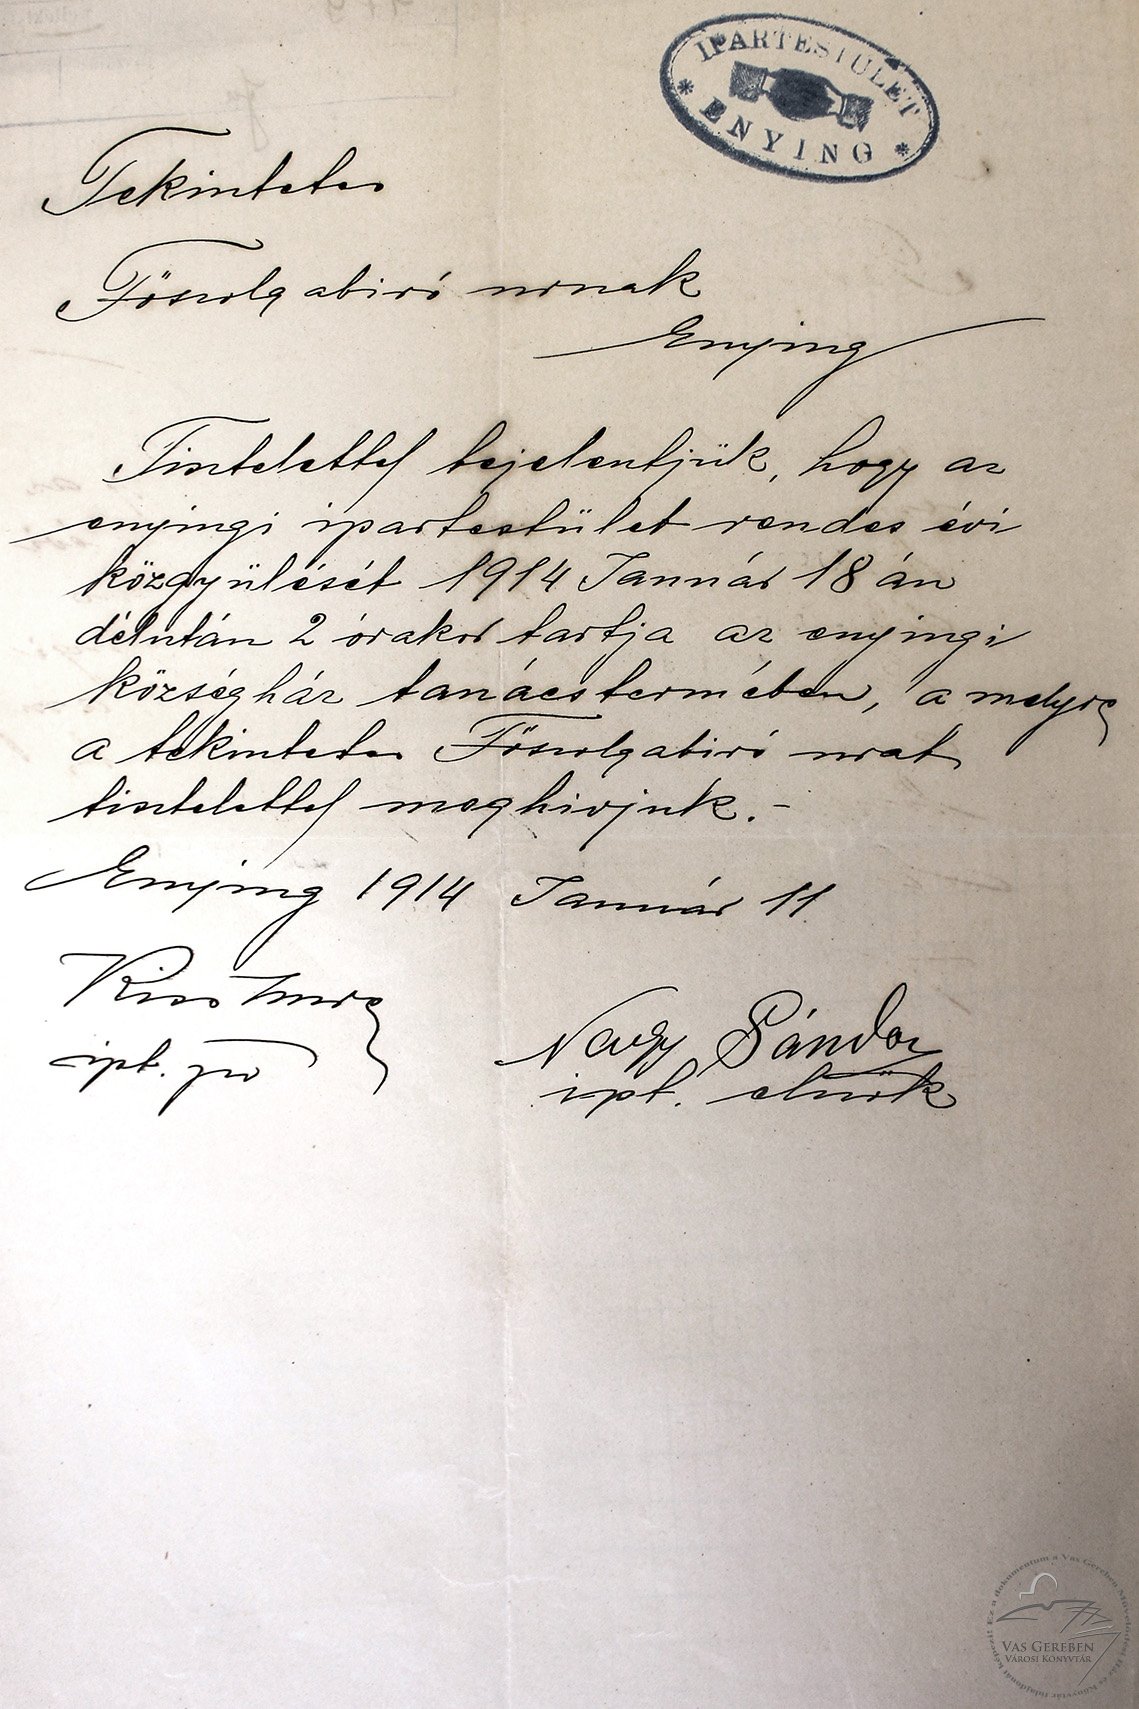 IPARTESTÜLET
* ENYING *
Tekintetes
Főszolgabiró urnak
Enying
Tisztelettel bejelentjük, hogy az
enyingi ipartestület rendes évi
közgyülését 1914 Január 18 án
délután 2 órakor tartja az enyingi
községház tanácstermében, a melyre
a tekintetes Főszolgabiró urat
tisztelettel meghivjuk.-
Enying 1914 Január 11
Kiss Imre
ipt.
Nagy Sándor
ipt. elnök
VAS GEREBEN
VÁROSI KÖNYVTÁR
Ez a dokumentum a Vas Gereben Művelődési Ház és Könyvtár tulajdonát képezi!